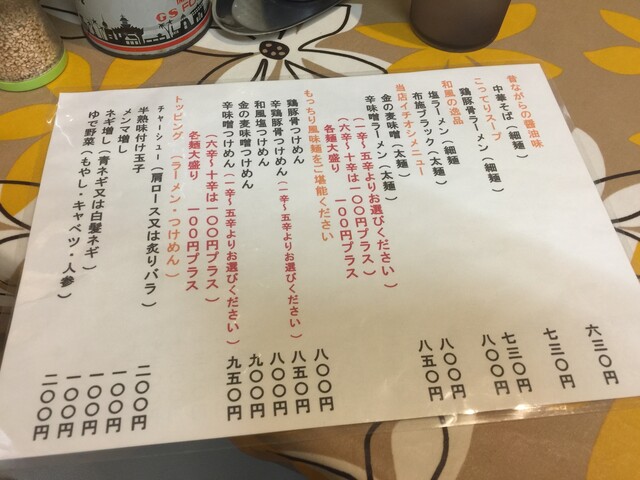 昔ながらの醤油味
中華そば(細麺) 六三〇円
こってりスープ
鶏豚骨ラーメン(細麺) 七三〇円
和風の逸品
塩ラーメン(細麺) 七三〇円
布施ブラック(太麺) 八〇〇円
当店イチオシメニュー
金の麦味噌(太麺) 八〇〇円
辛味噌ラーメン(太麺) 八五〇円
(一辛~五辛よりお選びください)
(六辛~十辛は一〇〇円プラス)
各麺大盛り 一〇〇円プラス
もっちり風味麺をご堪能ください
鶏豚骨つけめん 八〇〇円
辛鶏豚骨つけめん(一辛~五辛よりお選びください) 八五〇円
和風塩つけめん 八〇〇円
金の麦味噌つけめん 九〇〇円
辛味噌つけめん(一辛~五辛よりお選びください) 九五〇円
(六辛~十辛は一〇〇円プラス)
各麺大盛り 一〇〇円プラス
トッピング(ラーメン・つけめん)
チャーシュー(肩ロース又は炙りバラ) 二〇〇円
半熟味付け玉子 一〇〇円
メンマ増し 一〇〇円
ネギ増し(青ネギ又は白髪ネギ) 一〇〇円
ゆで野菜(もやし・キャベツ・人参) 二〇〇円
GS